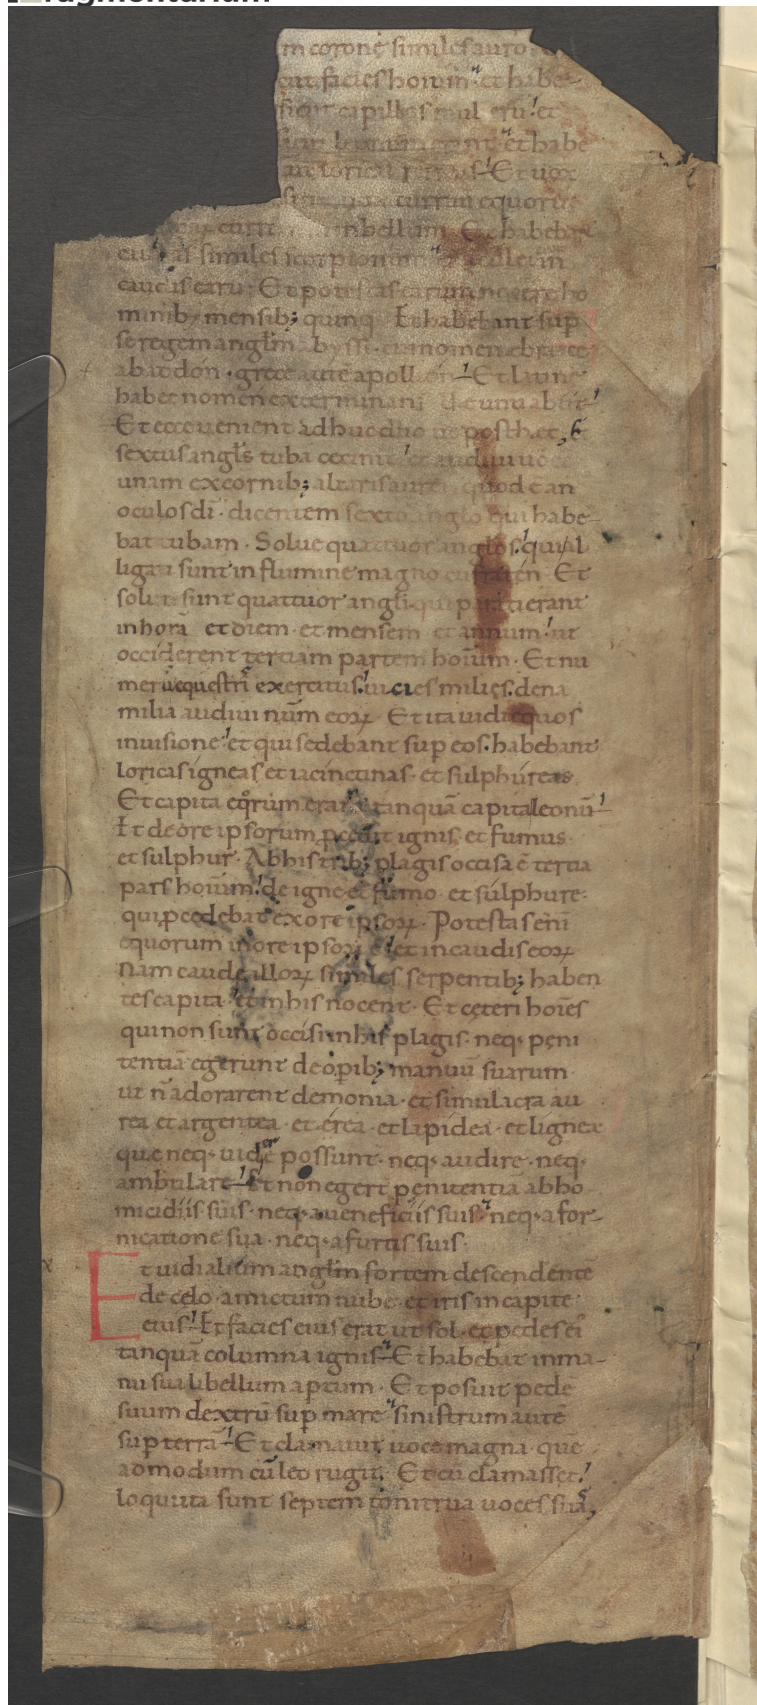 m coronę similes auro
facies hominū et habe-
capillos mulierū! et
erant et habe
loricas ferreas! Et uox
currum equorum
in bellum. Et habebant
caudas similes scorpionum et aculei in
caudis earū. Et potestas earum nocere ho
minib; mensib; quinq. Et habebant sup
se regem anglm abyssi. cui nomen ebraice
abaddon. grece aute apollion. Et latine
habet nomen exterminans. Uę unū abiit!
Et ecce uenient adhuc duo uę post hęc, &
sextus angls tuba cecinit! et audiui uocē
unam ex cornib; altaris aurei. quod ē an
oculos di. dicentem sexto anglo qui habe-
bat tubam. Solue quattuor anglos! qui al
ligati sunt in flumine magno eufraten. Et
soluti sunt quattuor angli. qui parati erant
in horā et diem. et mensem et annum! ut
occiderent tertiam partem hoium. Et nu
merus equestri exercitus! uicies milies dena
milia audiui num eoꝝ. Et ita uidi equos
in uisione! et qui sedebant sup eos. habebant
loricas igneas et iacinctinas. et sulphureas
Et capita eorum erant tanquā capita leonū!
Et de ore ipsorum pcedit ignis. et fumus
et sulphur. Ab his trib; plagis occisa ē tertia
pars hoium! de igne et fumo. et sulphure.
qui pcedebat ex ore ipsoꝝ. Potestas eni
equorum in ore ipsoꝝ ē! et in caudis eoꝝ
Nam caudę illoꝝ similes serpentib; haben
tes capita! et in his nocent. Et cęteri hoies
qui non sunt occisi in his plagis. neq; peni
tentiā egerunt de opib; manuū suarum
ut n̄ adorarent demonia. et simulacra au
rea et argentea. et ęrea. et lapidea. et lignea
quę neq; uidere possunt. neq; audire. neq;
ambulare! Et non egert penitentia ab ho
micidiis suis. neq; a ueneficiis suis. neq; a for-
nicatione sua. neq; a furtis suis.
Et uidi alium anglm fortem descendentē
de cęlo. amictum nube. et iris in capite
eius! Et facies eius erat ut sol. et pedes ei
tanquā columna ignis. Et habebat in ma-
nu sua libellum aptum. Et posuit pedē
suum dextrū sup mare sinistrum autē
sup terrā! Et clamauit uoce magna. quē
admodum cū leo rugit. Et cū clamasset!
loquuta sunt septem tonitrua uoces suas,